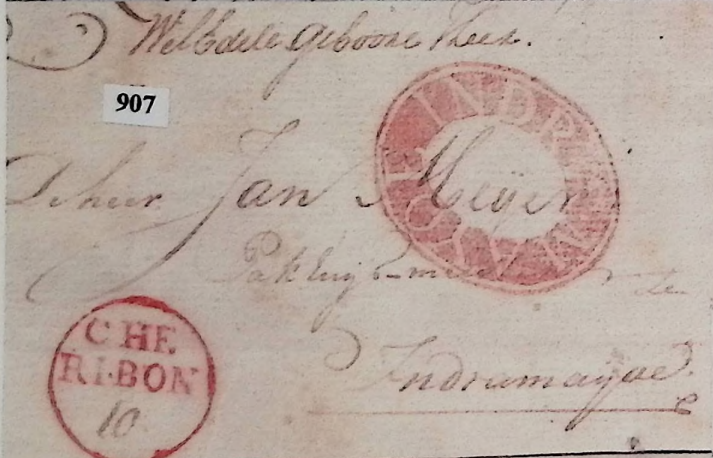 WelEdele Geboore Heer.
907
INDR
De heer Jan Meyer
Pakhuys-mee te
Indramayoe.
CHE
RI·BON
10